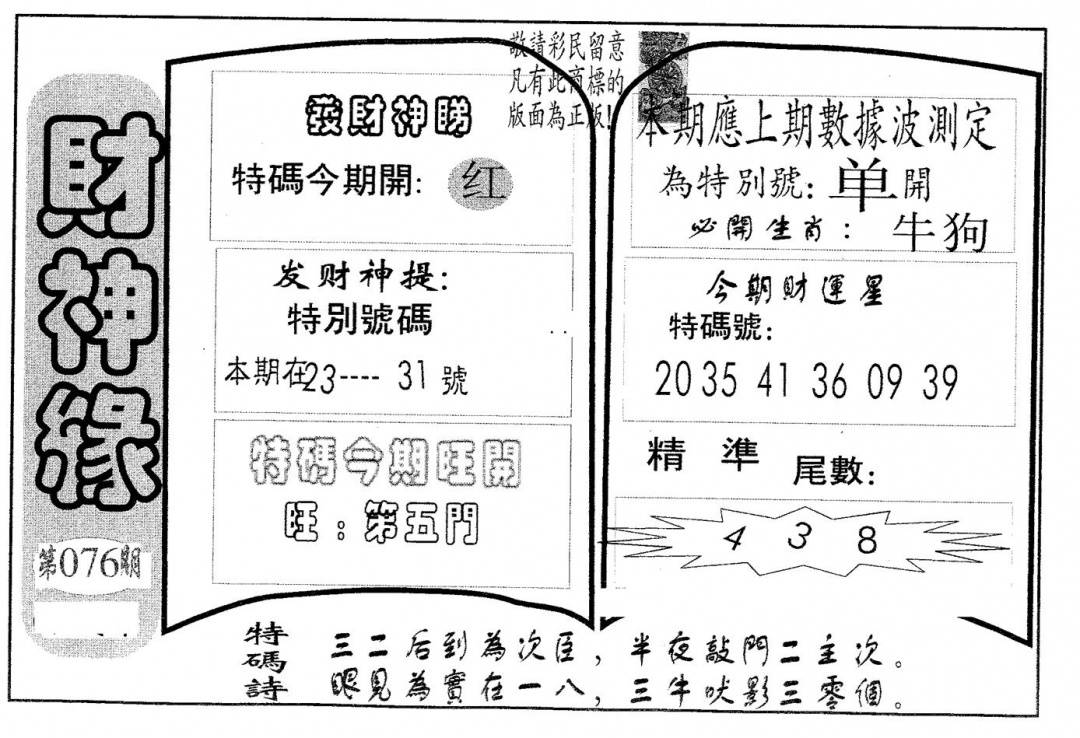 財神緣
第076期
敬請彩民留意
凡有此商標的
版面為正版!
發財神睇
特碼今期開: 红
发财神提:
特別號碼
本期在23---- 31號
特碼今期旺開
旺:第五門
本期應上期數據波測定
為特別號: 单開
必開生肖: 牛狗
今期財運星
特碼號:
20 35 41 36 09 39
精準 尾數:
4 3 8
特碼詩
三二后到為次臣，半夜敲門二主次。
眼見為實在一八，三牛吠影三零個。